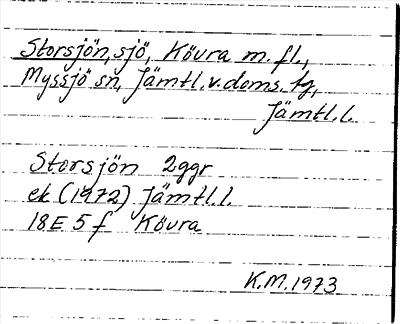 Storsjön, sjö, Kövra m. fl.,
Myssjö sn, Jämtl. v. doms. tg,
Jämtl. l.
Storsjön 2ggr
ek (1972) Jämtl. l.
18E 5f Kövra
K.M. 1973